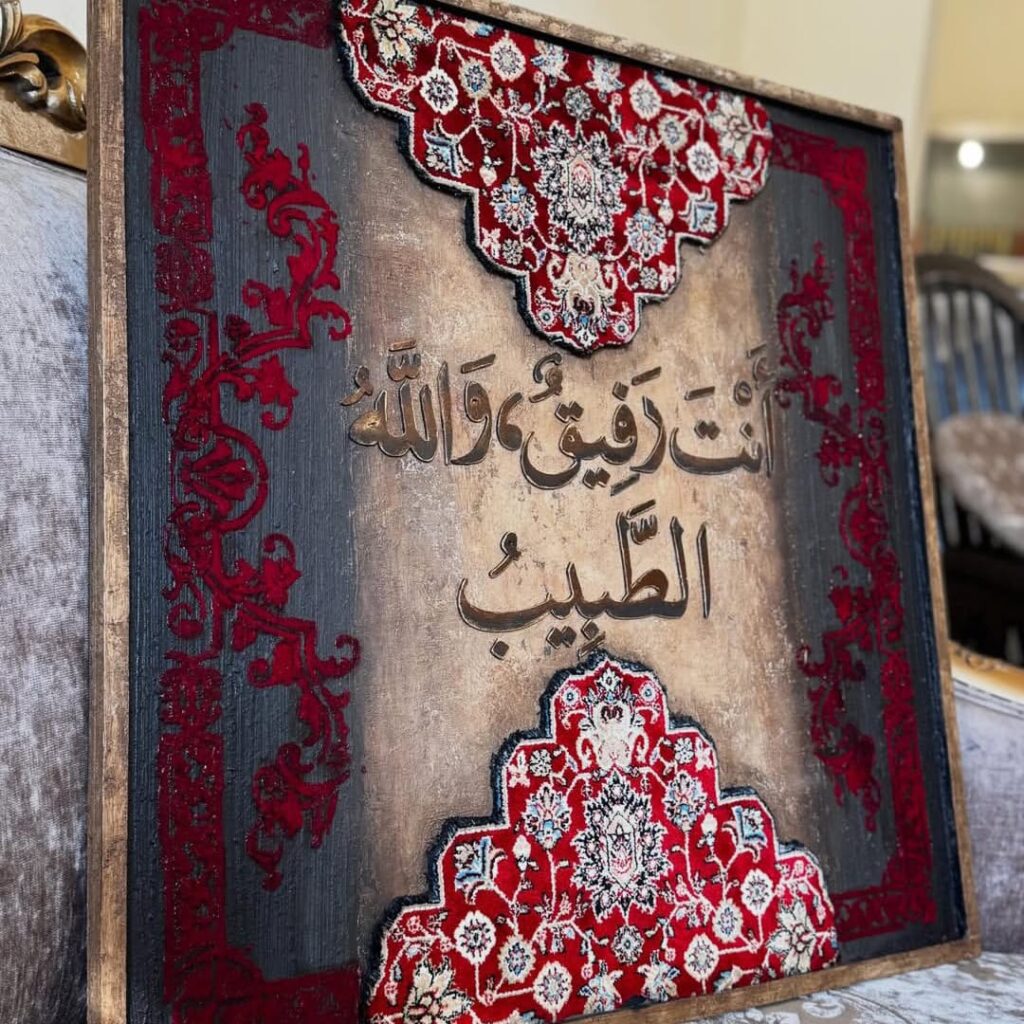 أَنْتَ رَفِيقٌ، وَاللَّهُ
الطَّبِيبُ